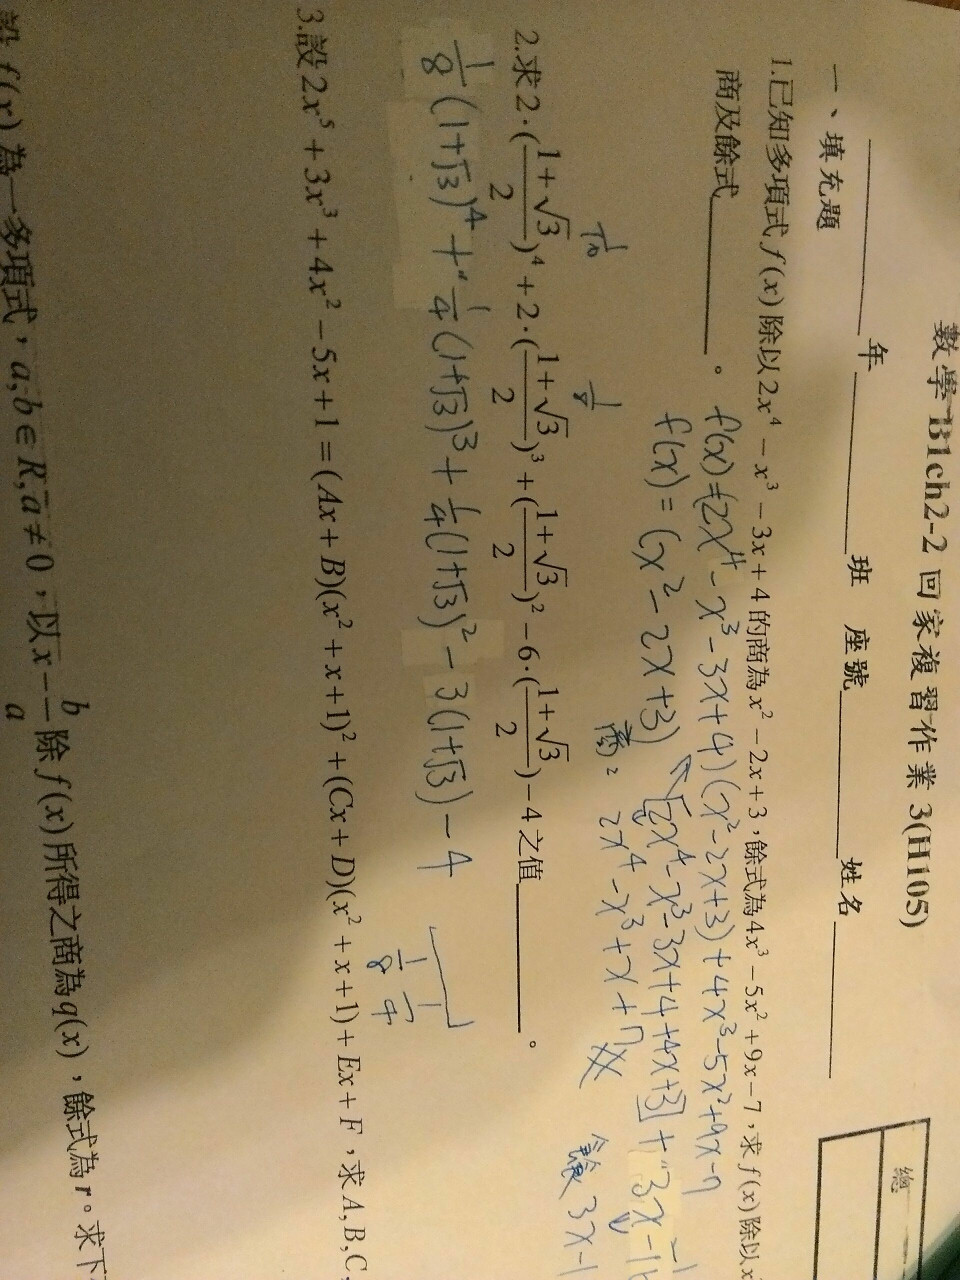 數學 B1ch2-2 回家複習作業 3(H105)
年 班 座號 姓名
總
一、填充題
1.已知多項式 f(x) 除以 2x⁴ − x³ − 3x + 4 的商為 x² − 2x + 3,餘式為 4x³ − 5x² + 9x − 7,求 f(x) 除以 x
商及餘式______。
f(x)=(2x⁴ − x³ − 3x + 4)(x² − 2x + 3) + 4x³ − 5x² + 9x − 7
f(x) = (x² − 2x + 3) [2x⁴ − x³ − 3x + 4 + 4x + 3] +
商: 2x⁴ − x³ + x + 7
餘 3x − 1
2.求 2·((1+√3)/2)⁴ + 2·((1+√3)/2)³ + ((1+√3)/2)² − 6·((1+√3)/2) − 4 之值______。
1/8 (1+√3)⁴ + 1/4 (1+√3)³ + 1/4 (1+√3)² − 3(1+√3) − 4
3.設 2x⁵ + 3x³ + 4x² − 5x + 1 = (Ax + B)(x² + x + 1)² + (Cx + D)(x² + x + 1) + Ex + F,求 A, B, C,
設 f(x) 為一多項式,a, b ∈ R, a ≠ 0,以 x − b/a 除 f(x) 所得之商為 q(x),餘式為 r。求下